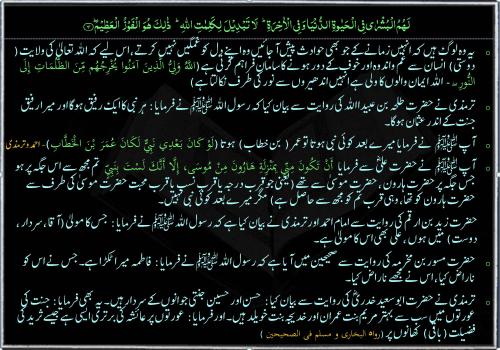 لَهُمُ الْبُشْرٰى فِي الْحَيٰوةِ الدُّنْيَا وَفِي الْاٰخِرَةِ ؕ لَا تَبْدِيْلَ لِكَلِمٰتِ اللّٰهِ ؕ ذٰلِكَ هُوَ الْفَوْزُ الْعَظِيْمُ
یہ وہ لوگ ہیں کہ انہیں زمانے کے جو بھی حوادث پیش آجائیں وہ اپنے دل کو غمگین نہیں کرتے، اس لیے کہ اللہ تعالیٰ کی ولایت (
دوستی) انسان سے غم واندوہ اور خوف کے دور ہونے کا سامان فراہم کرتی ہے (اللّٰهُ وَلِيُّ الَّذِينَ آمَنُوا يُخْرِجُهُم مِّنَ الظُّلُمَاتِ إِلَى
النُّورِ ۔ اللہ ایمان والوں کا ولی ہے انہیں اندھیروں سے نور کی طرف نکالتا ہے)
ترمذی نے حضرت طلحہ بن عبید اللہ کی روایت سے بیان کیا کہ رسول اللہ ﷺ نے فرمایا : ہر نبی کا ایک رفیق ہوگا اور میرا رفیق
جنت کے اندر عثمان ہوگا۔
آپ ﷺ نے فرمایا میرے بعد کوئی نبی ہوتا تو عمر ( بن خطاب) ہوتا (لَوْ كَانَ بَعْدِي نَبِيٌّ لَكَانَ عُمَرَ بْنَ الْخَطَّابِ)۔ احمد وترمذی
آپ ﷺ نے حضرت علیؓ سے فرمایا أَنْ تَكُونَ مِنِّي بِمَنْزِلَةِ هَارُونَ مِنْ مُوسَى، إِلَّا أَنَّكَ لَسْتَ بِنَبِيٍّ تم مجھ سے اس جگہ پر ہو
جس جگہ پر حضرت ہارون، حضرت موسیٰ سے تھے (یعنی جو قرب درجہ یا قرب نسب یا قرب محبت حضرت موسیٰ کی طرف سے
حضرت ہارون کو تھا، وہی قرب تم کو مجھ سے حاصل ہے) مگر میرے بعد کوئی نبی نہیں۔
حضرت زید بن ارقم کی روایت سے امام احمد اور ترمذی نے بیان کیا ہے کہ رسول اللہ ﷺ نے فرمایا : جس کا مولیٰ (آقا، سردار،
دوست) میں ہوں، علی بھی اس کا مولیٰ ہے۔
حضرت مسور بن مخرمہ کی روایت سے صحیحین میں آیا ہے کہ رسول اللہ ﷺ نے فرمایا : فاطمہ میرا ٹکڑا ہے۔ جس نے اس کو
ناراض کیا، اس نے مجھے ناراض کیا۔
ترمذی نے حضرت ابو سعید خدریؓ کی روایت سے بیان کیا : حسن اور حسین جنتی جوانوں کے سردار ہیں۔ یہ بھی فرمایا : جنت کی
عورتوں میں سب سے بہتر مریم بنت عمران اور خدیجہ بنت خویلد ہیں۔ اور فرمایا : عورتوں پر عائشہ کی برتری ایسی ہے جیسے ثرید کی
فضیلت (باقی) کھانوں پر (رواہ البخاری و مسلم فی الصحیحین )